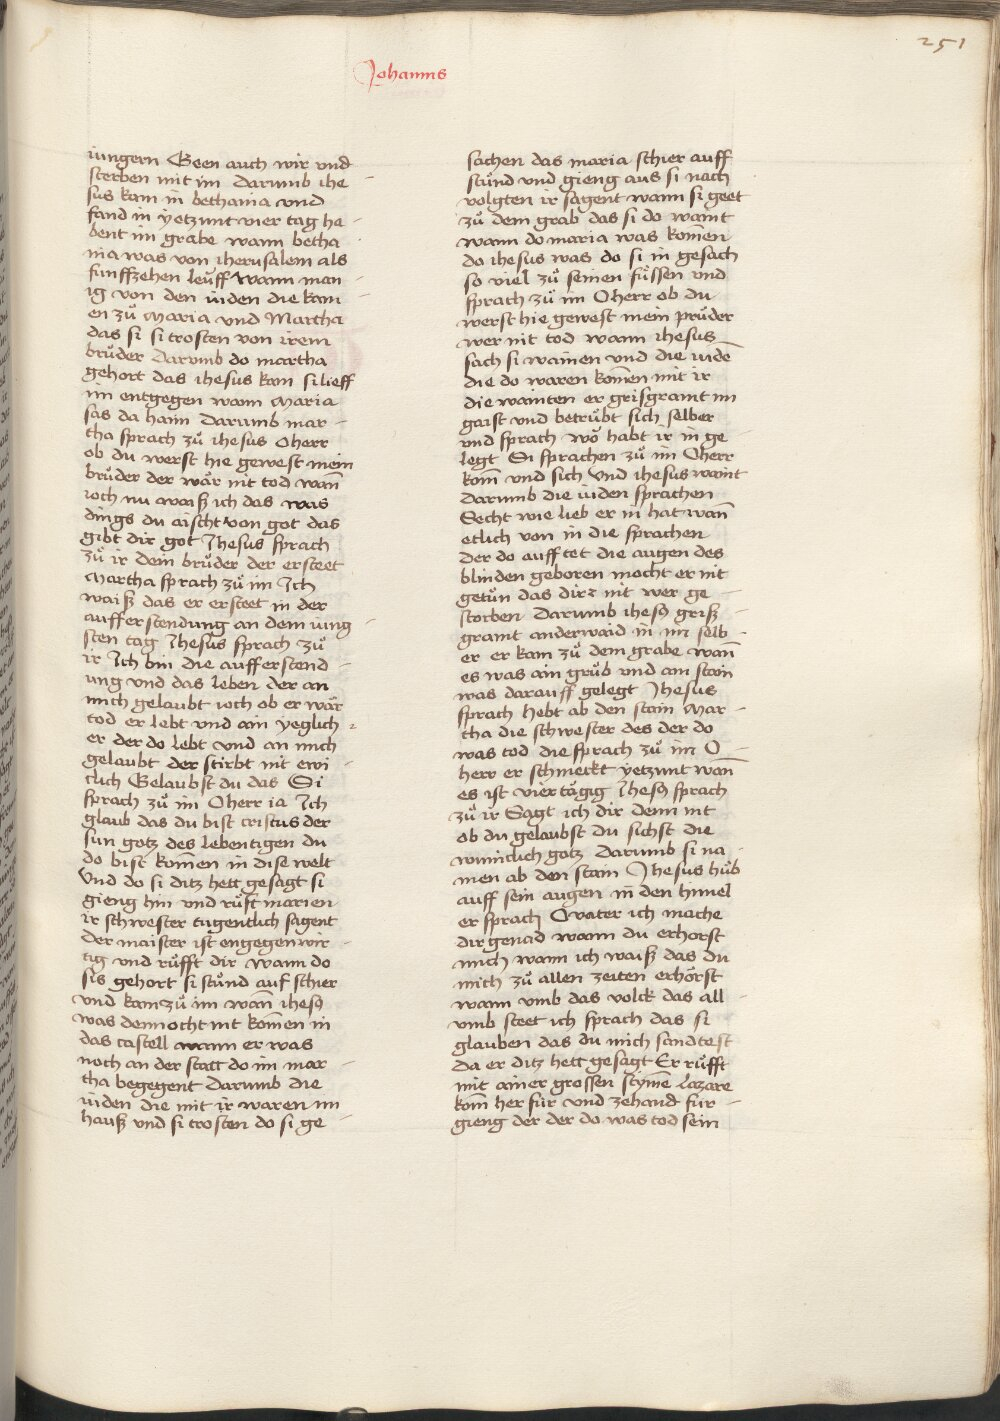 251
Johannis
iungern Geen auch wir vnd
sterben mit im Darumb ihe
sus kam in bethania vnd
fand in yetzunt vier tag ha
bent im grabe wann betha
nia was von iherusalem als
funffzehen leuff wann man
ig von den iuden die kam
en zů Maria vnd Martha
das si si trosten von irem
brůder Darumb do martha
gehort das ihesus kam si lieff
im entgegen wann Maria
sas da haim Darumb mar
tha sprach zů ihesus O herr
ob du werst hie gewest mein
brůder der wår nit tod wan̄
ioch nu waiß ich das was
dings du aischt von got das
gibt dir got Jhesus sprach
zů ir dein brůder der ersteet
Martha sprach zů im Ich
waiß das er ersteet in der
aufferstendung an dem iung
sten tag Jhesus sprach zů
ir Ich bin die aufferstend
ung vnd das leben der an
mich gelaubt ioch ob er wår
tod er lebt vnd ain yeglich
er der do lebt vnd an mich
gelaubt der stirbt nit ewi
clich Gelaubst du das Si
sprach zů im O herr ia Ich
glaub das du bist cristus der
sun gotz des lebentigen du
do bist kom̄en in dise welt
Vnd do si ditz hett gesagt si
gieng hin vnd růft marien
ir schwester tugentlich sagent
der maister ist engegenwir
tig vnd růfft dir wann do
sis gehort si stůnd auf schier
vnd kam zů im wan̄ ihesꝯ
was dennocht nit kom̄en in
das castell wann er was
noch an der statt do im mar
tha begegent Darumb die
iuden die mit ir waren im
hauß vnd si trosten do si ge
sachen das maria schier auff
stůnd vnd gieng aus si nach
volgten ir sagent wann si geet
zů dem grab das si do waint
wann do maria was kom̄en
do ihesus was do si in gesach
so viel zů seinen fůssen vnd
sprach zů im O herr ob du
werst hie gewest mein průder
wer nit tod wann ihesus
sach si wainen vnd die iudē
die do waren kom̄en mit ir
die wainten er grisgramt im
gaist vnd betrůbt sich selber
vnd sprach wo habt ir in ge
legt Si sprachen zů im O herr
kom̄ vnd sich Vnd ihesus waint
Darumb die iuden sprachen
Secht wie lieb er in hat wan̄
etlich von in die sprachen
der do auff tet die augen des
blinden geboren mocht er nit
getůn das dirr nit wer ge
storben Darumb ihesꝯ griß
gramt anderwaid in im selb
er er kam zů dem grabe wan̄
es was ain grůb vnd ain stain
was darauff gelegt Jhesus
sprach hebt ab den stain Mar
tha die schwester des der do
was tod die sprach zů im O
herr er schmeckt yetzunt wan̄
es ist viertågig Jhesꝯ sprach
zů ir Sagt ich dir denn nit
ob du gelaubst du sichst die
wunniclich gotz Darumb si na
men ab den stain Jhesus hůb
auff sein augen in den himel
er sprach O vater ich mache
dir genad wann du erhorst
mich wann ich waiß das du
mich zů allen zeiten erhörst
wann vmb das volck das all
vmb steet ich sprach das si
glauben das du mich sandtest
Da er ditz hett gesagt Er růfft
mit ainer grossen stym̄e Lazare
kom̄ her fur vnd zehand fur
gieng der der do was tod sein